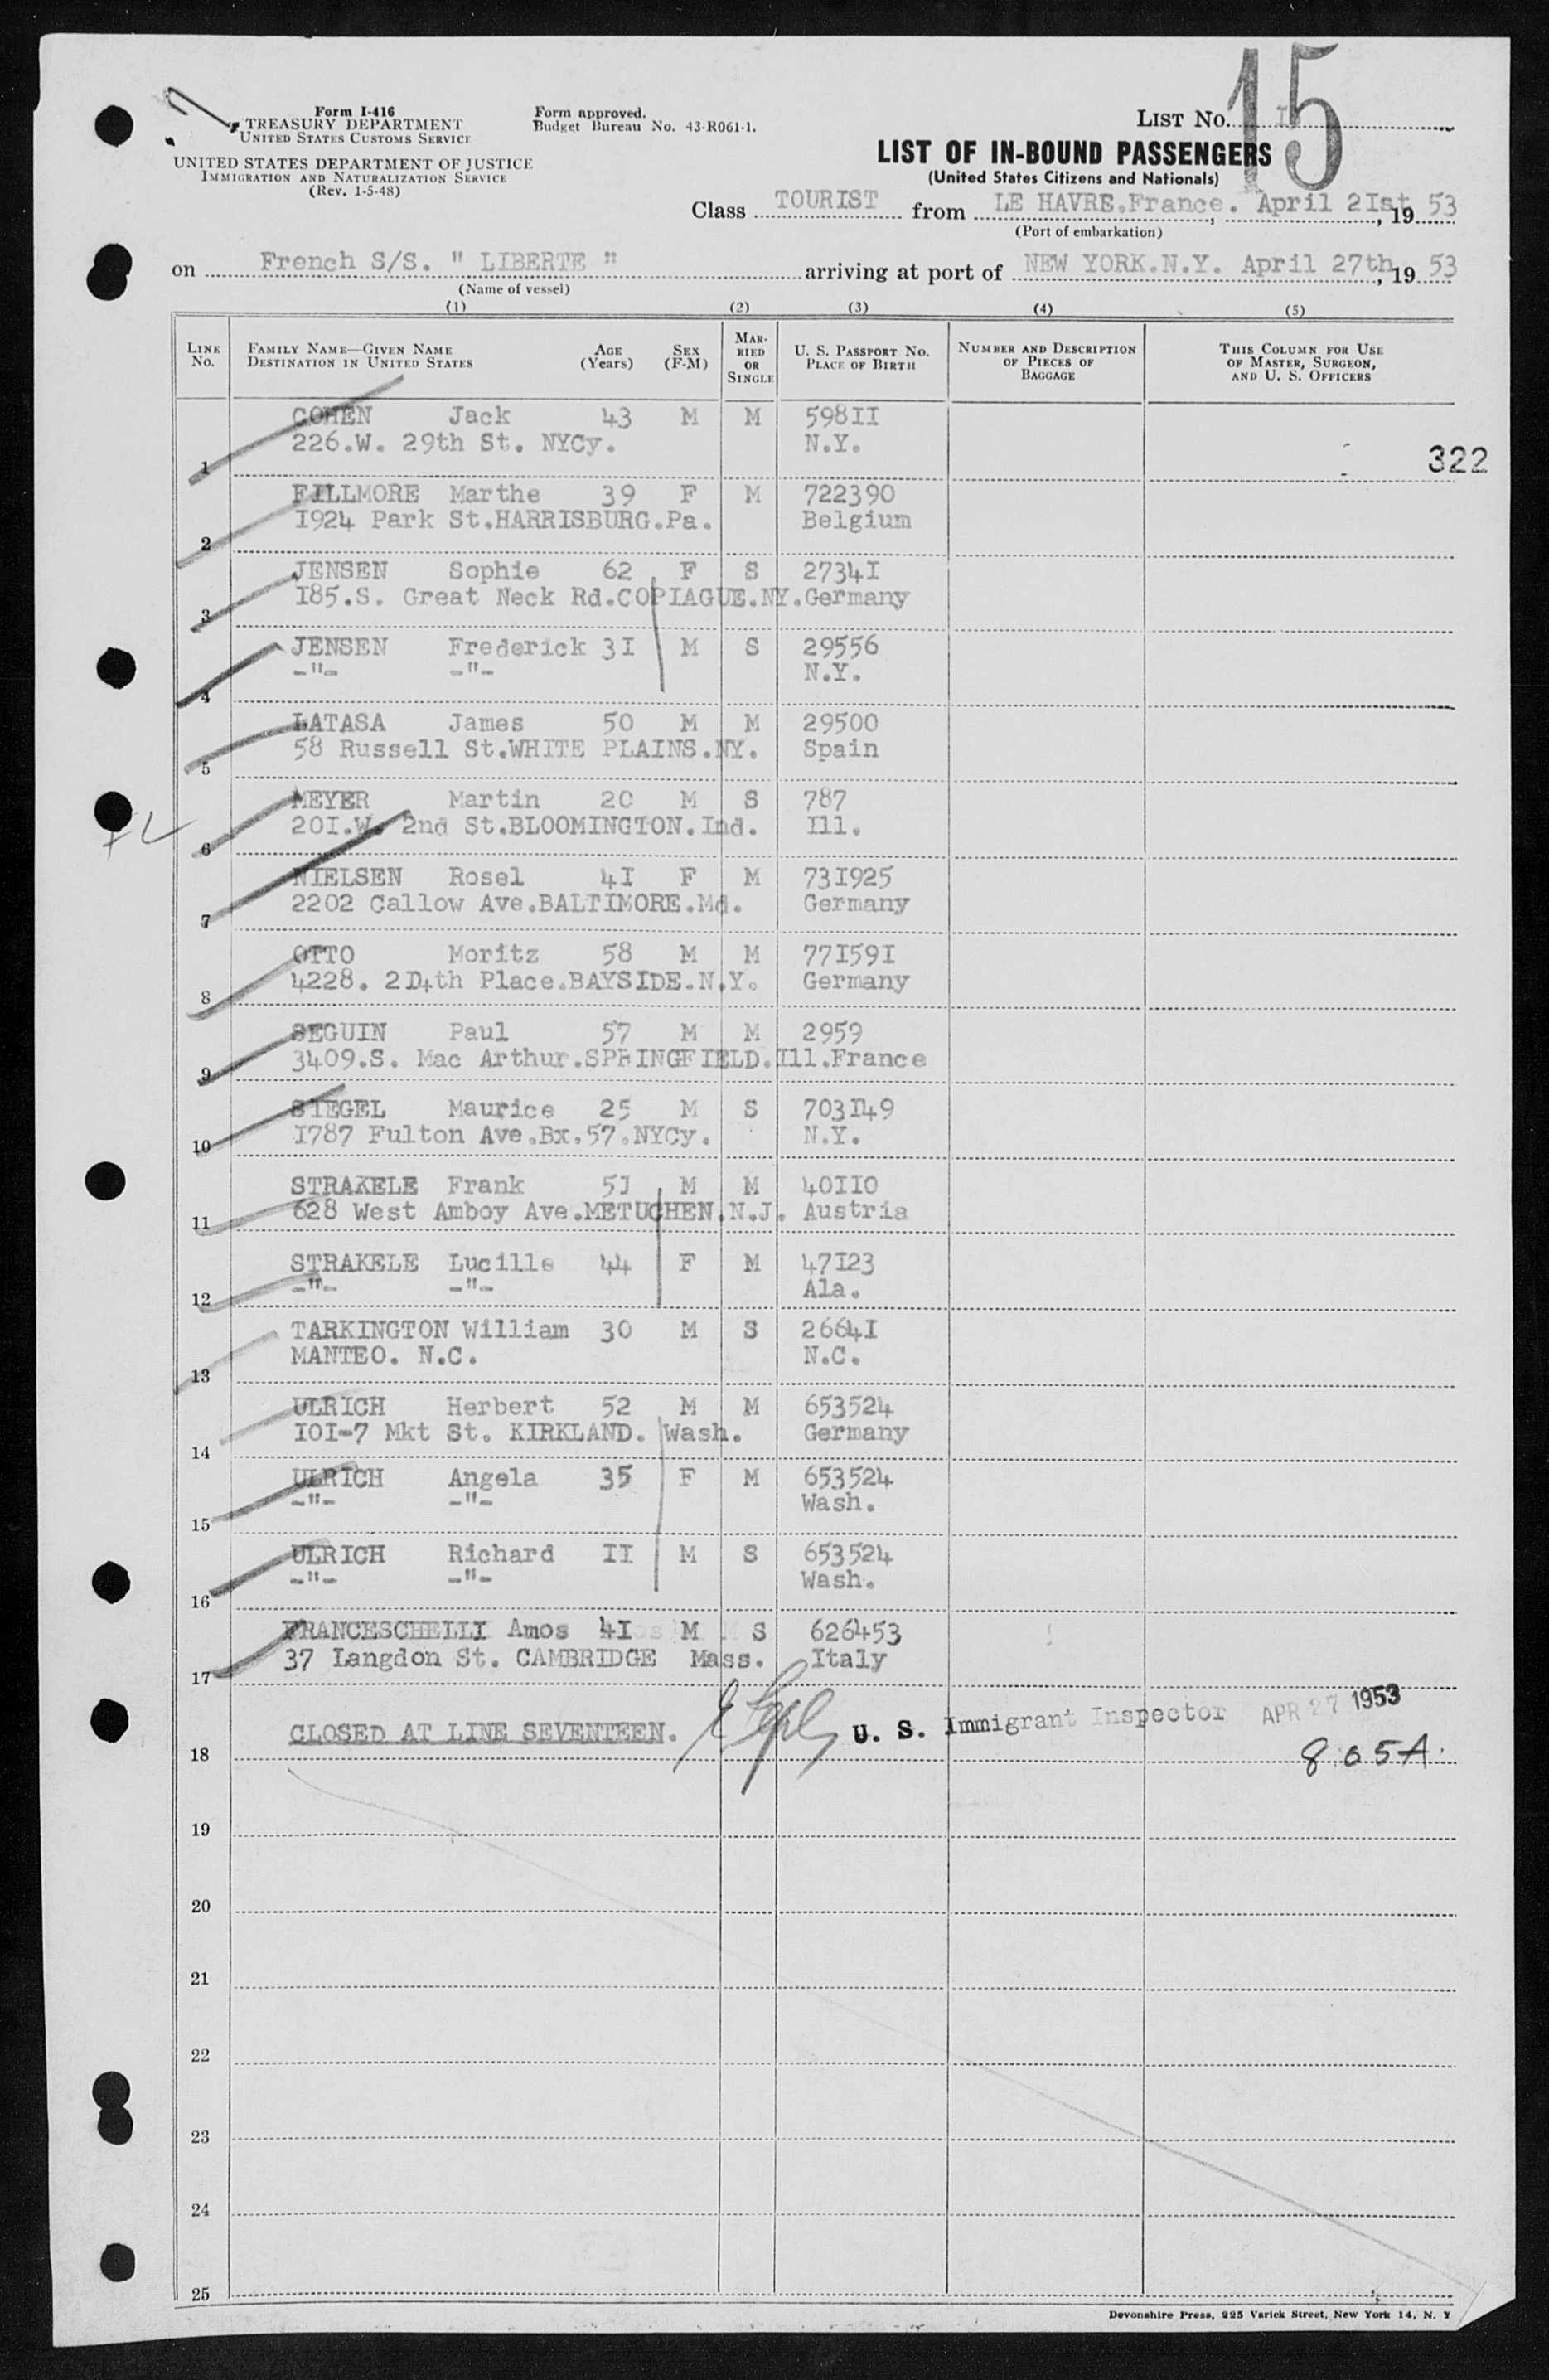 15
Form I-416
TREASURY DEPARTMENT
UNITED STATES CUSTOMS SERVICE
UNITED STATES DEPARTMENT OF JUSTICE
IMMIGRATION AND NATURALIZATION SERVICE
(Rev. 1-5-48)
Form approved.
Budget Bureau No. 43-R061-1.
LIST No. I
LIST OF IN-BOUND PASSENGERS
(United States Citizens and Nationals)
Class TOURIST from LE HAVRE.France. April 2Ist, 19 53
(Port of embarkation)
on French S/S. " LIBERTE " arriving at port of NEW YORK.N.Y. April 27th, 19 53
(Name of vessel)
(1) (2) (3) (4) (5)
LINE No. FAMILY NAME—GIVEN NAME DESTINATION IN UNITED STATES AGE (Years) SEX (F-M) MARRIED OR SINGLE U. S. PASSPORT No. PLACE OF BIRTH NUMBER AND DESCRIPTION OF PIECES OF BAGGAGE THIS COLUMN FOR USE OF MASTER, SURGEON, AND U. S. OFFICERS
COHEN Jack 43 M M 598II
1 226.W. 29th St. NYCy. N.Y. 322
FILLMORE Marthe 39 F M 722390
2 I924 Park St.HARRISBURG.Pa. Belgium
JENSEN Sophie 62 F S 2734I
3 I85.S. Great Neck Rd.COPIAGUE.NY. Germany
JENSEN Frederick 3I M S 29556
4 -"- -"- N.Y.
LATASA James 50 M M 29500
5 58 Russell St.WHITE PLAINS.NY. Spain
MEYER Martin 20 M S 787
6 20I.W. 2nd St.BLOOMINGTON.Ind. Ill.
NIELSEN Rosel 4I F M 73I925
7 2202 Callow Ave.BALTIMORE.Md. Germany
OTTO Moritz 58 M M 77I59I
8 4228. Place.BAYSIDE.N.Y. Germany
SEGUIN Paul 57 M M 2959
9 3409.S. Mac Arthur.SPRINGFIELD.Ill. France
SIEGEL Maurice 25 M S 703I49
10 I787 Fulton Ave.Bx.57.NYCy. N.Y.
STRAKELE Frank 5I M M 40II0
11 628 West Amboy Ave.METUCHEN.N.J. Austria
STRAKELE Lucille 44 F M 47I23
12 -"- -"- Ala.
TARKINGTON William 30 M S 2664I
13 MANTEO. N.C. N.C.
ULRICH Herbert 52 M M 653524
14 I0I-7 Mkt St. KIRKLAND. Wash. Germany
ULRICH Angela 35 F M 653524
15 -"- -"- Wash.
ULRICH Richard II M S 653524
16 -"- -"- Wash.
FRANCESCHELLI Amos 4I M S 626453
17 37 Langdon St. CAMBRIDGE Mass. Italy
18 CLOSED AT LINE SEVENTEEN. U. S. Immigrant Inspector APR 27 1953
805A
19
20
21
22
23
24
25
Devonshire Press, 225 Varick Street, New York 14, N. Y